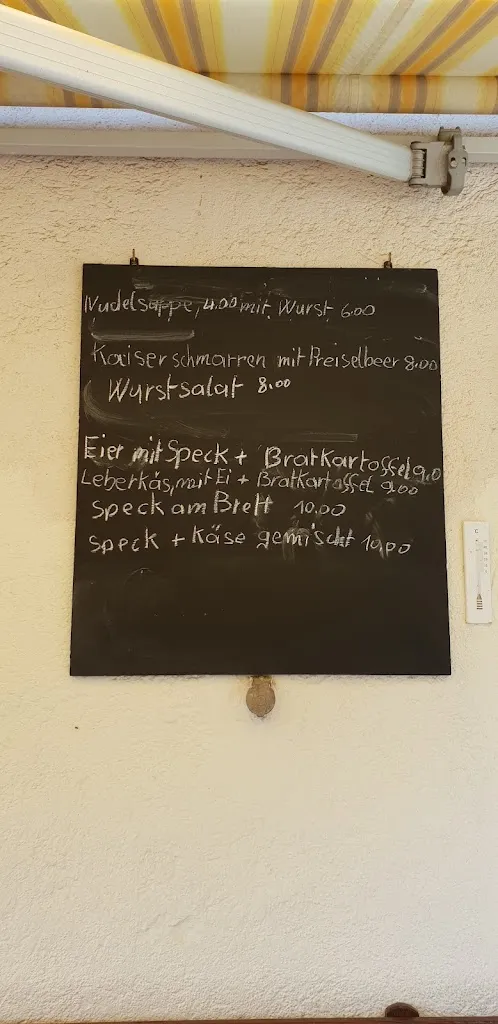 Nudelsuppe, 4.00 mit Wurst 6.00
Kaiserschmarren mit Preiselbeer 8.00
Wurstsalat 8.00
Eier mit Speck + Bratkartossel 9.0
Leberkäs, mit Ei + Bratkartossel 9.00
Speck am Brett 10.00
Speck + Käse gemischt 10.00